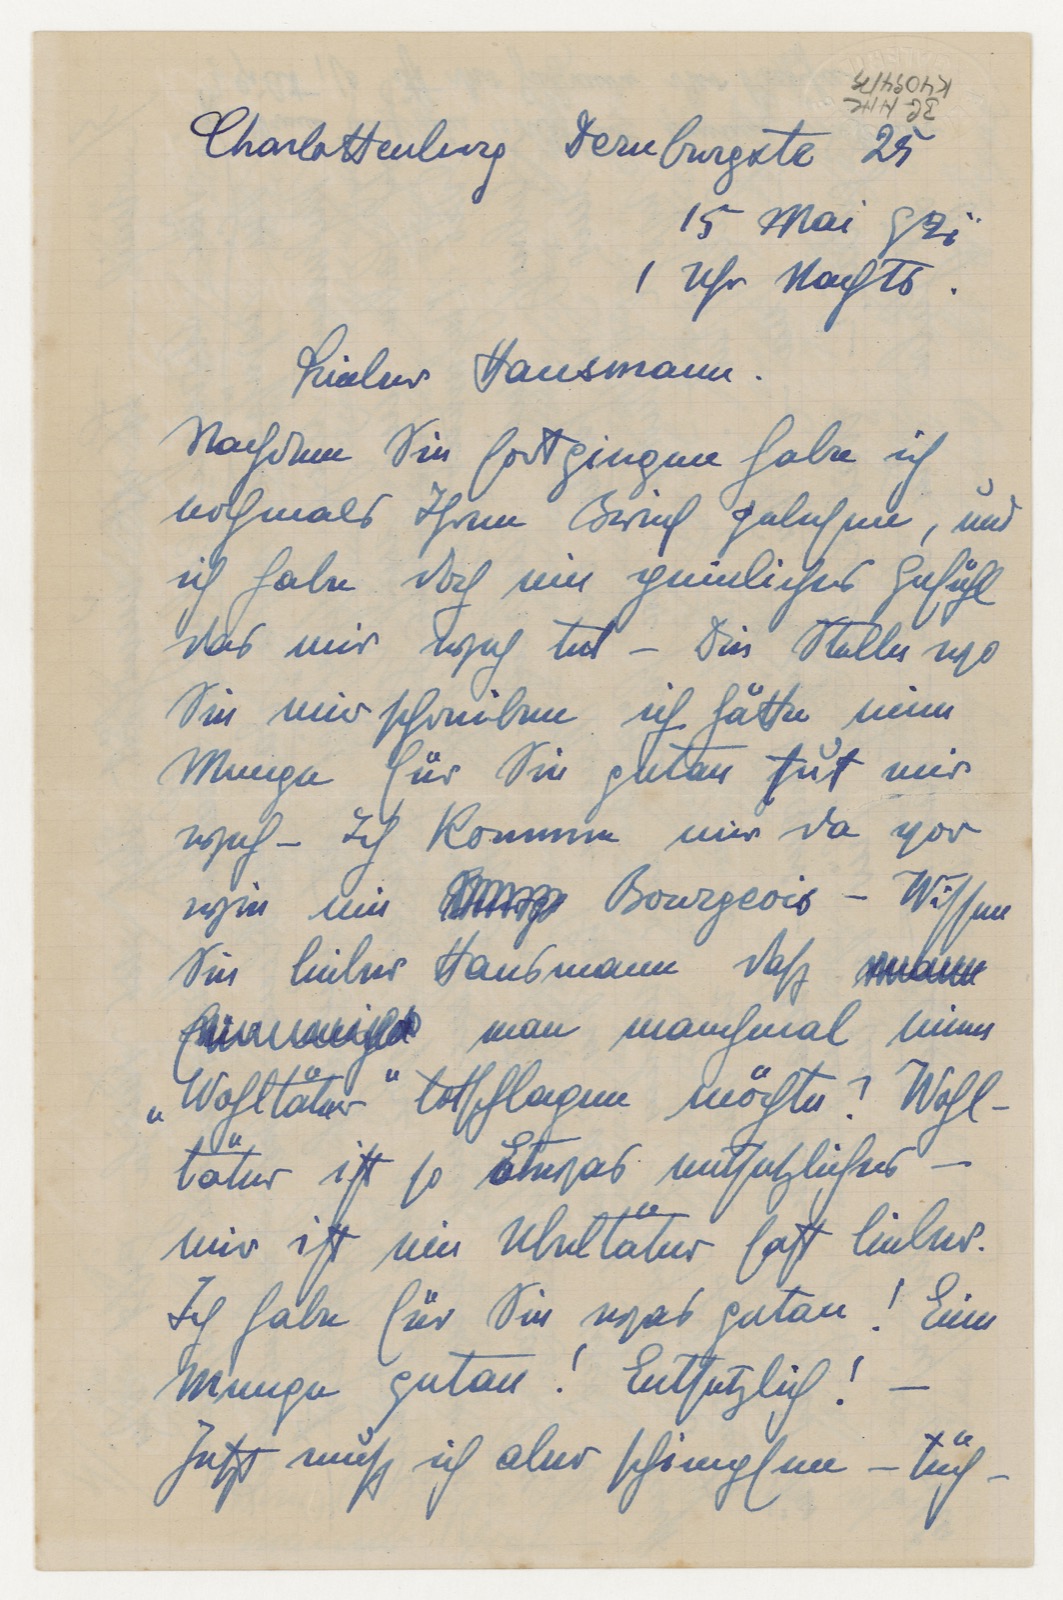 BG HHC
K 4094/79
Charlottenburg Dernburgstr 25
15 Mai
1 Uhr Nachts.
Lieber Hausmann.
Nachdem Sie fortgingen habe ich
nochmals Ihren Brief gelesen, und
ich habe doch ein peinliches Gefühl
das mir weh tut – Die Stelle wo
Sie mir schreiben ich hätte eine
Menge für Sie getan tut mir
weh – Ich komme mir da vor
wie ein Bourgeois – Wissen
Sie lieber Hausmann daß
man manchmal einen
„Wohltäter" totschlagen möchte? Wohl-
täter ist so etwas entsetzliches –
mir ist ein Übeltäter fast lieber.
Ich habe für Sie was getan! Eine
Menge getan! Entsetzlich! –
Jetzt muß ich aber schimpfen – tüch-